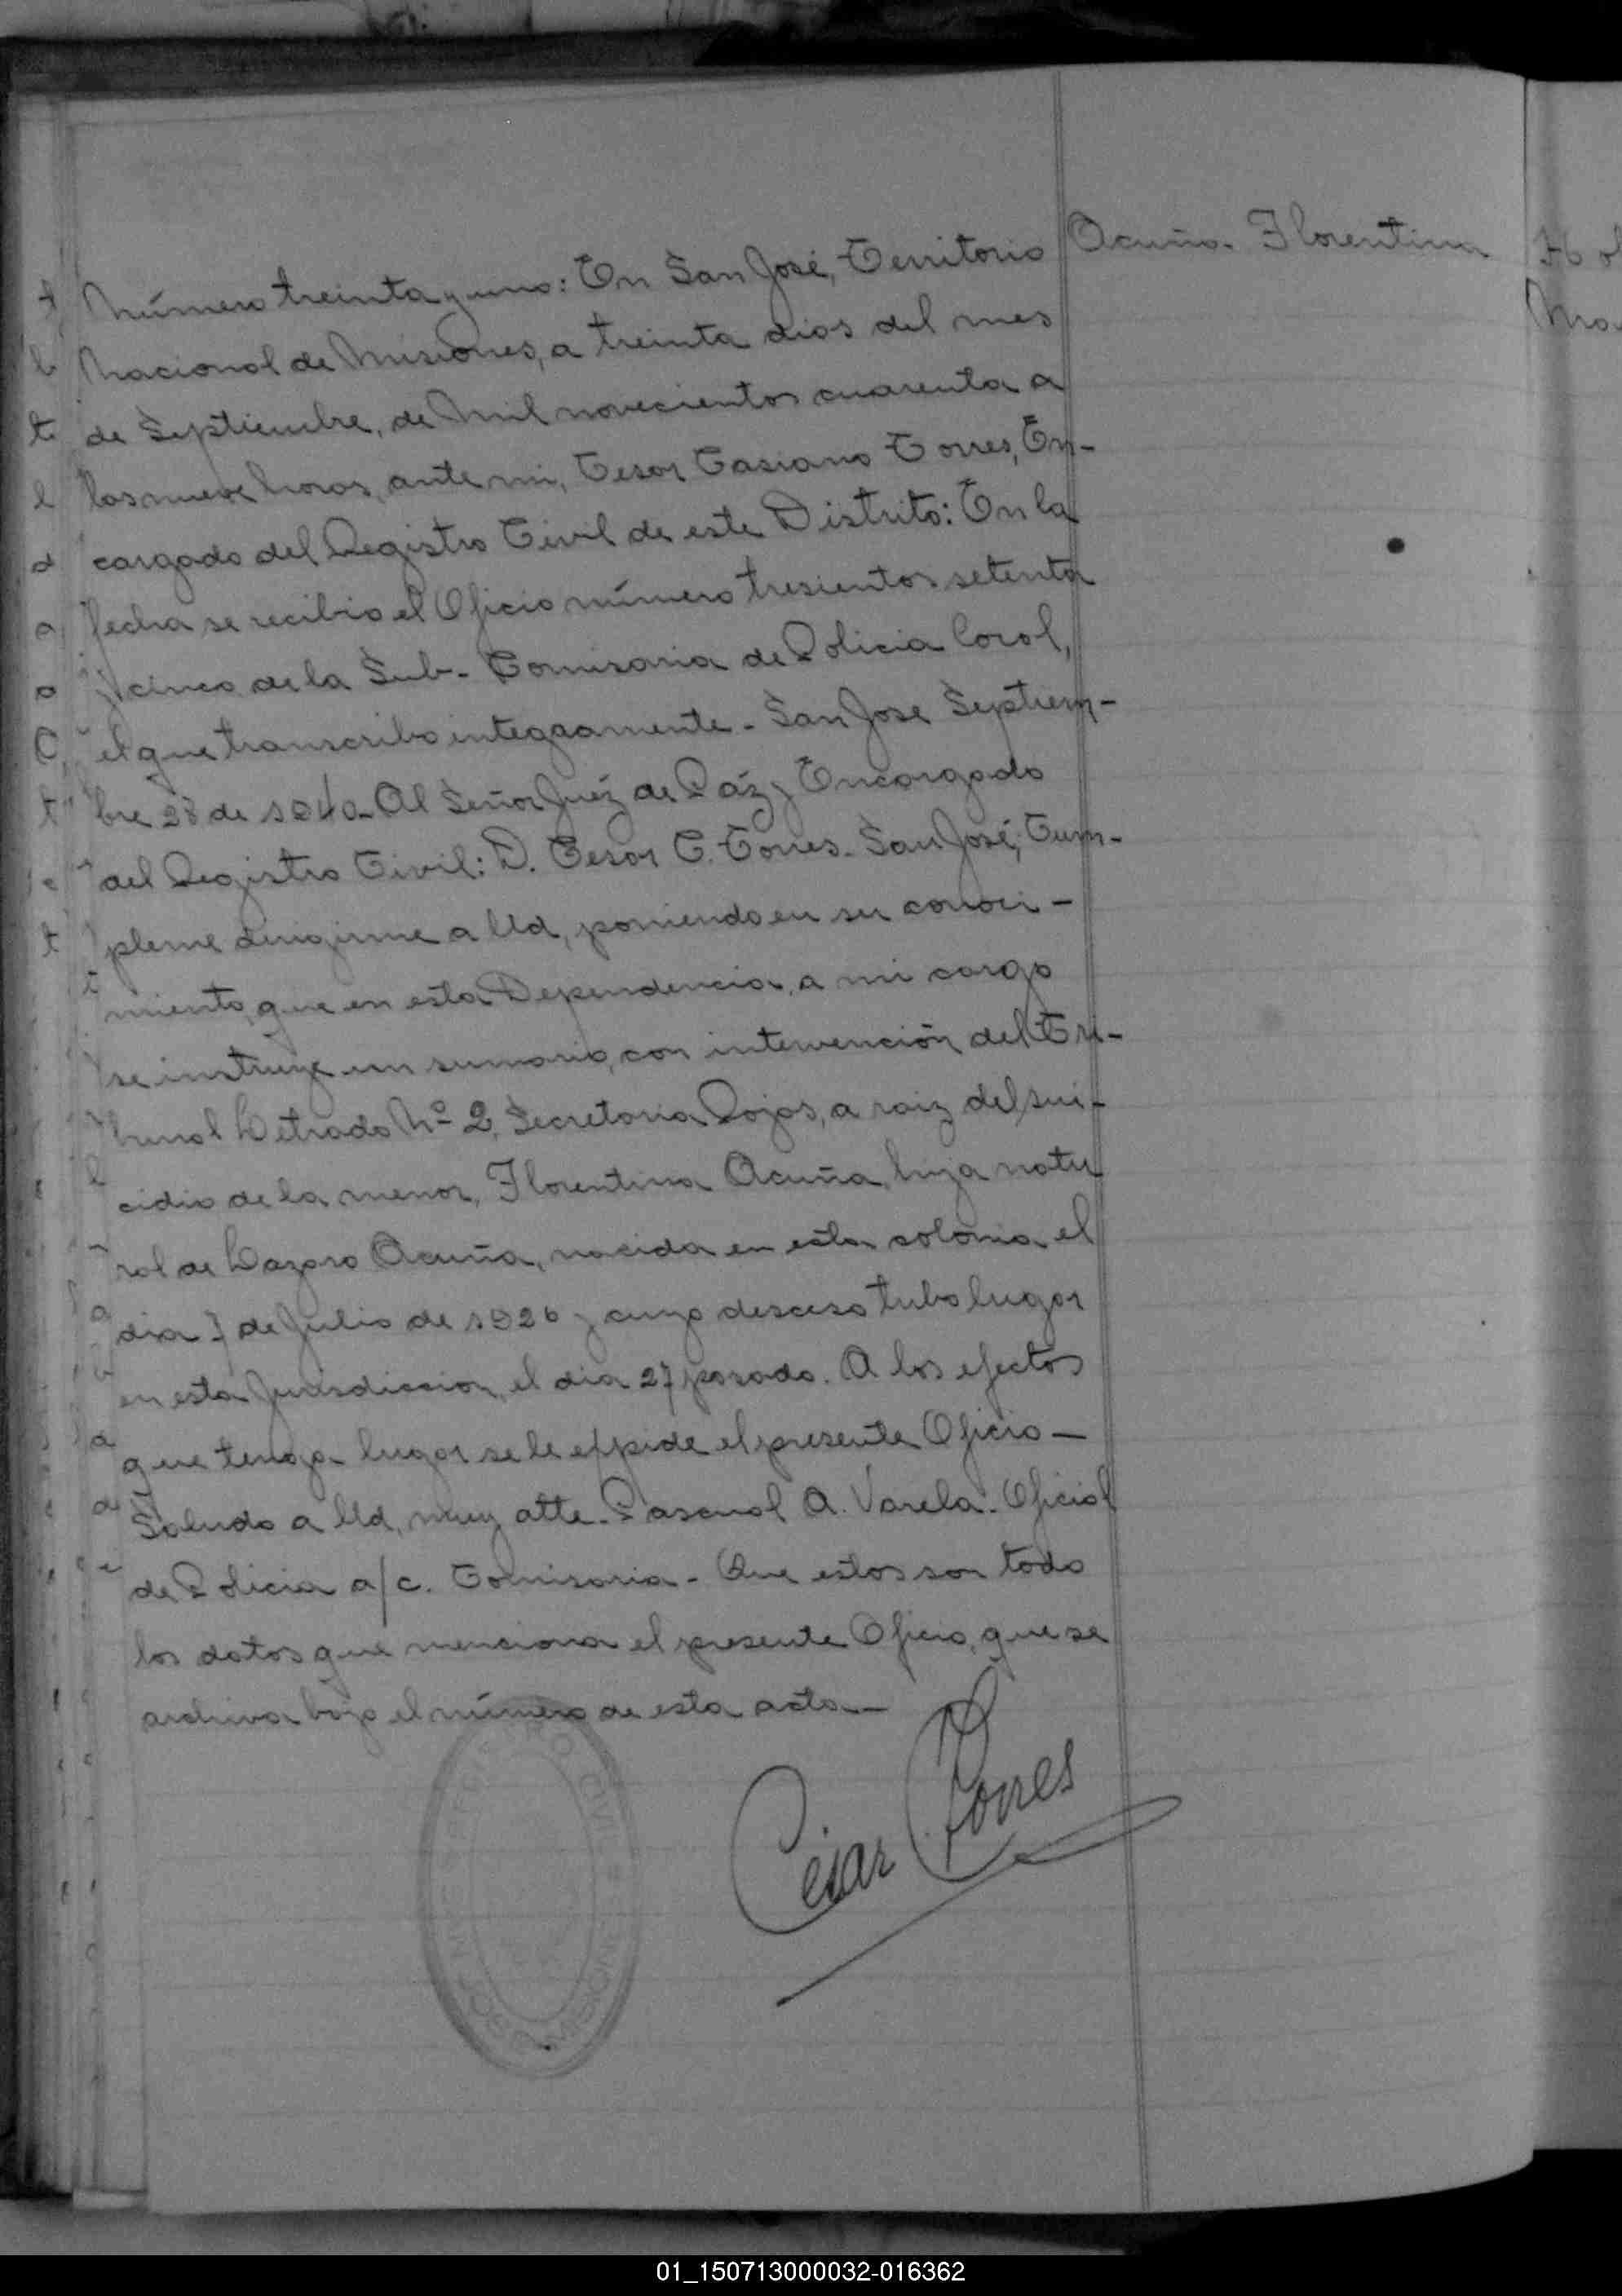 Acuña. Florentina
Número treinta y uno: En San José, Territorio
Nacional de Misiones, a treinta dias del mes
de Septiembre, de Mil novecientos cuarenta a
las nueve horas, ante mi, Cesar Casiano Torres, En-
cargado del Registro Civil de este Distrito: En la
fecha se recibio el Oficio número tresientos setenta
y cinco de la Sub-Comisaria de Policia local,
el que transcribo integramente - San Jose Septiem-
bre 28 de 1940. Al Señor Juéz de Páz y Encargado
del Registro Civil: D. Cesar C. Torres. San José; Cum-
pleme dirigirme a Ud, poniendo en su conoci-
miento, que en esta Dependencia, a mi cargo
se instruye un sumario, con intervención del Tri-
bunal Letrado Nº 2, Secretaria Rojas, a raiz del sui-
cidio de la menor, Florentina Acuña, hija natu
ral de Lazara Acuña, nacida en esta colonia el
dia 7 de Julio de 1926 y cuyo desceso tubo lugar
en esta Jurisdiccion, el dia 27 pasado. A los efectos
que tenga lugar se le expide el presente Oficio -
Saludo a Ud, muy atte. Pascual A. Varela. Oficial
de Policia a/c. Comisaria - Que estos son todo
los datos que menciona el presente Oficio, que se
archiva bajo el número de esta acta -
Cesar Torres
REGISTRO CIVIL
SAN JOSE MISIONES
01_150713000032-016362